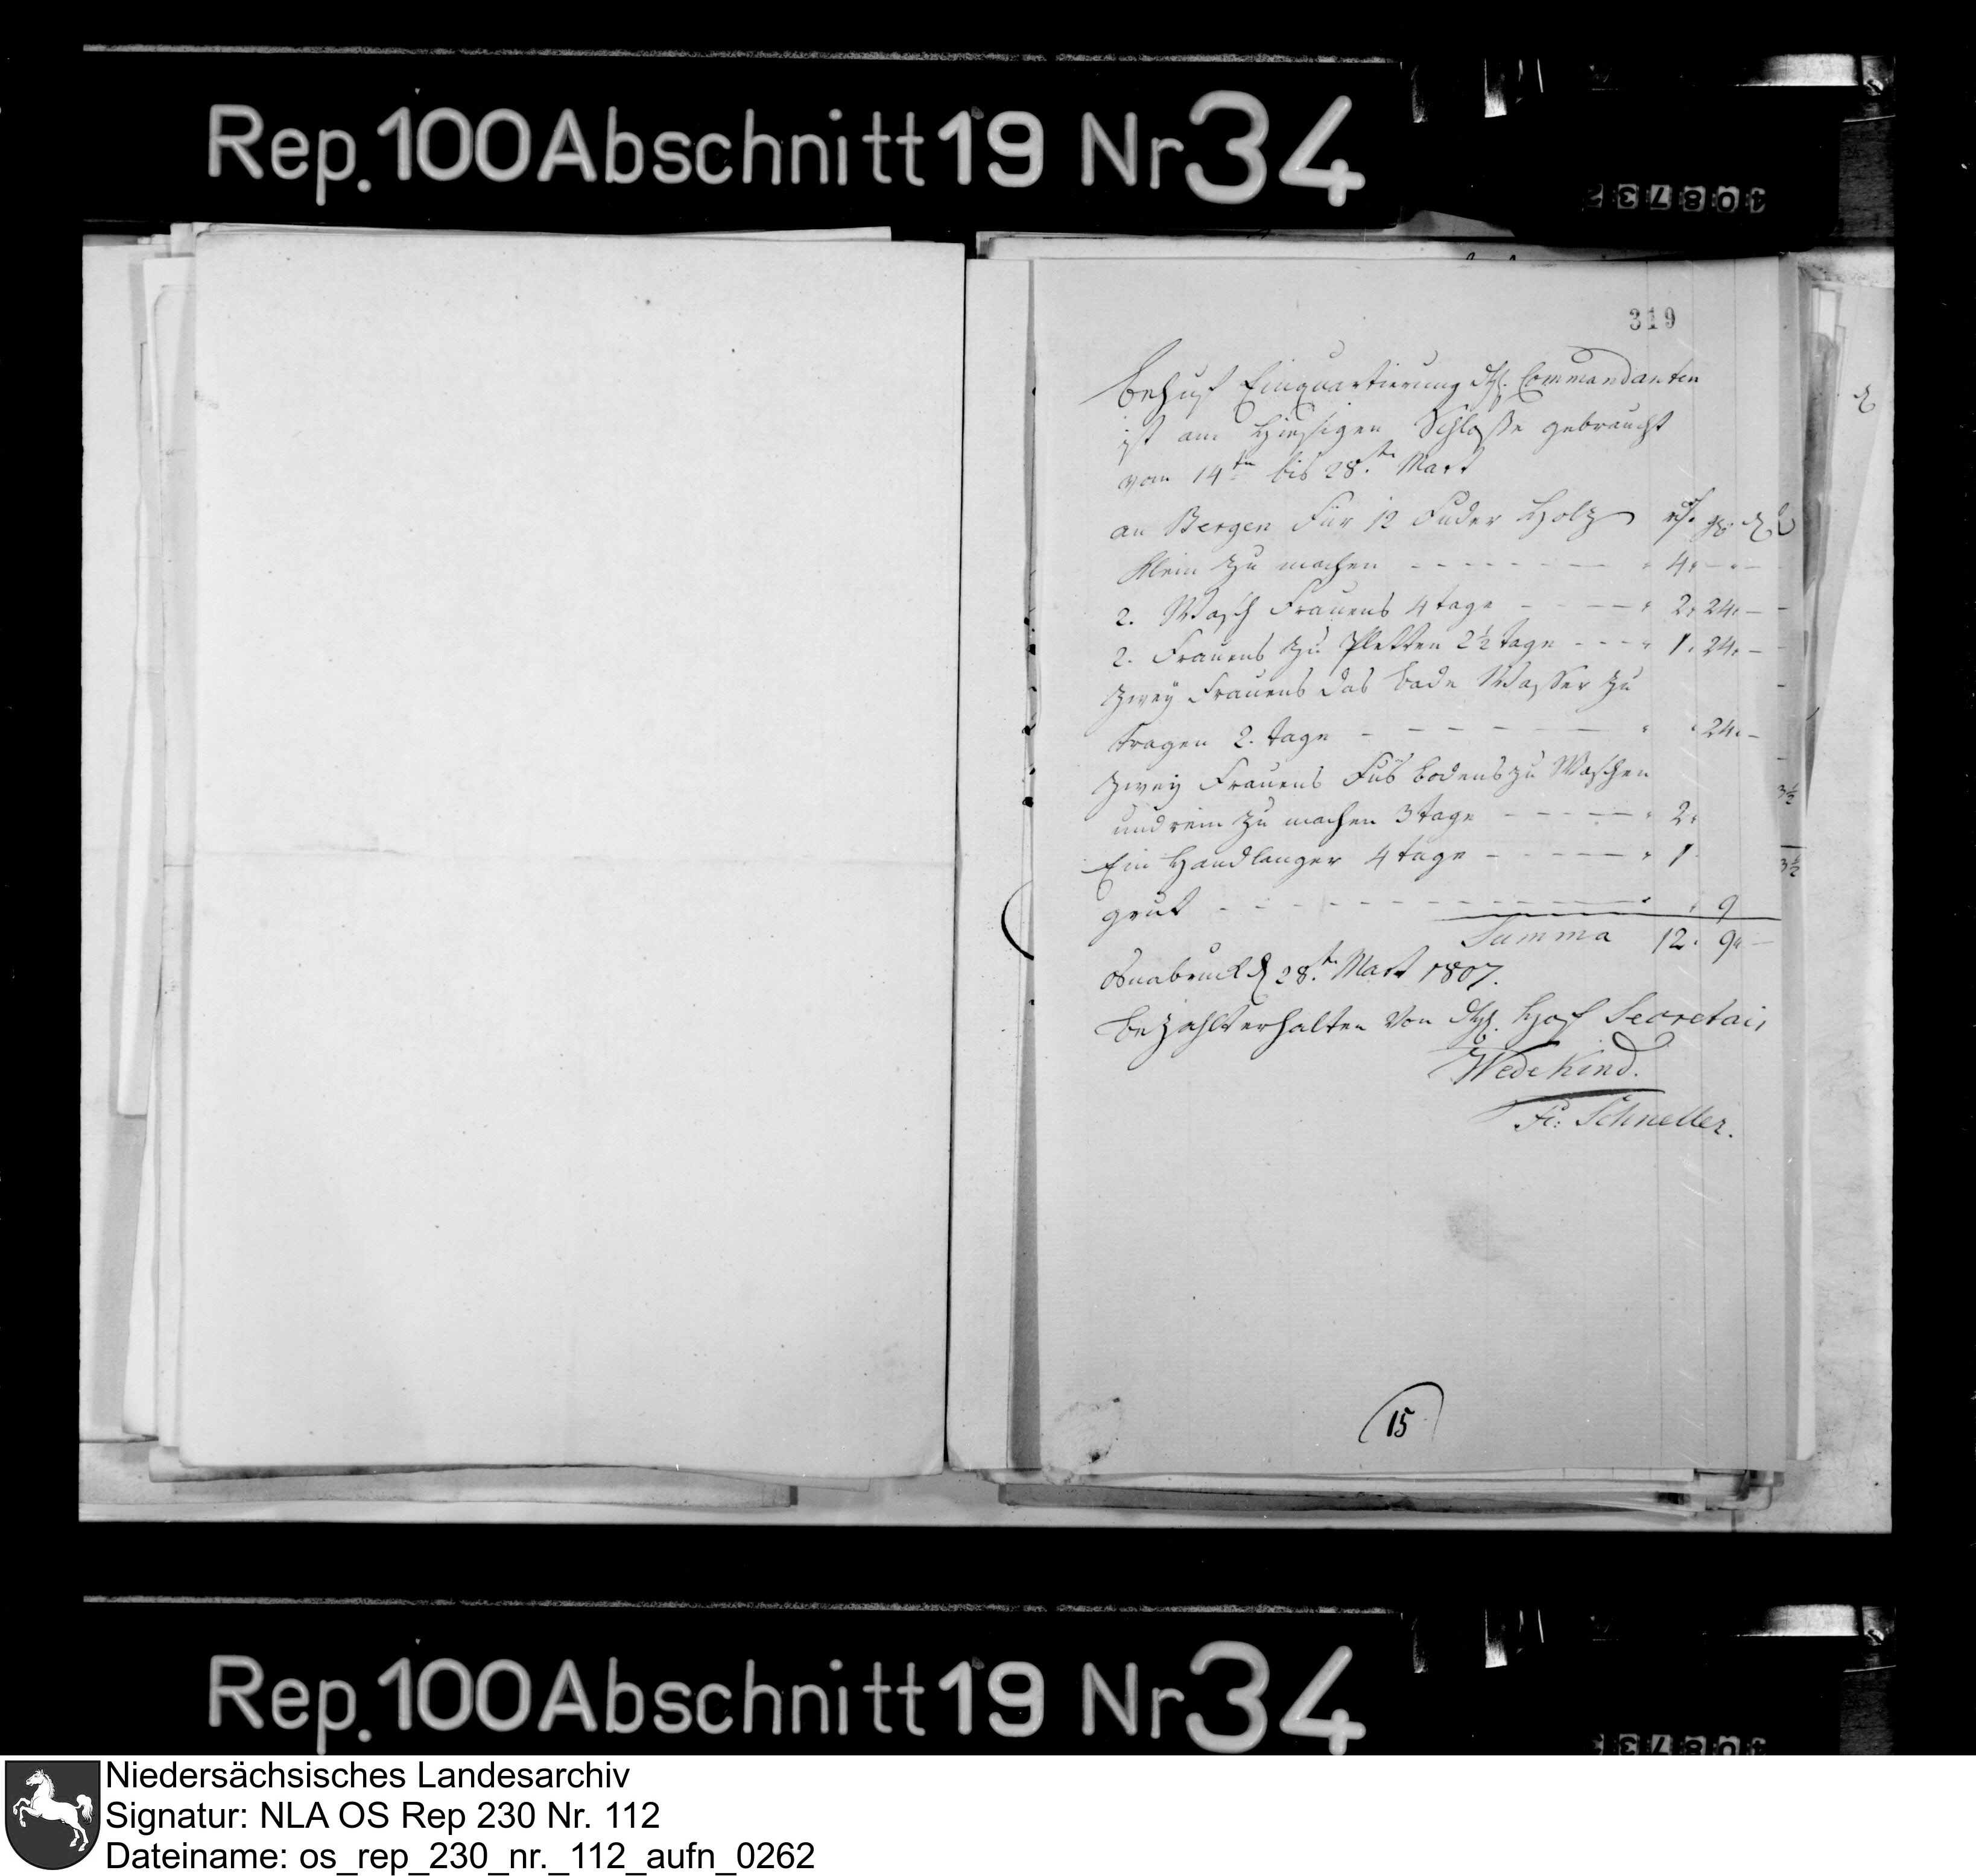 Rep. 100 Abschnitt 19 Nr 34
408732
319
Behuf Einquartierung Commandanten
ist am hiesigen Schloße gebraucht
vom 14tn bis 28.tn Mart
an Bergen Für 12 Fuder Holz
klein zu machen - - - - - - - 4. - -
2. Wasch Frauens 4 tage - - - 2. 24. -
2. Frauens zu Pletten 2½ tage - - - 1. 24. -
Zwey Frauens das bade Wasser zu
tragen 2. tage - - - - - - 24. -
zwey Frauens Fus bodens zu Waschen
und rein zu machen 3 tage - - - - 2.
Ein Handlanger 4 tage - - - - 1.
- - - - - - - - 9
Summa 12. 9. -
Osnabruck d 28.tn Mart 1807.
bezahlt erhalten von Hof Secretair
Wedekind.
Fr: Schneller.
3½
3½
15
Rep. 100 Abschnitt 19 Nr 34
Niedersächsisches Landesarchiv
Signatur: NLA OS Rep 230 Nr. 112
Dateiname: os_rep_230_nr._112_aufn_0262